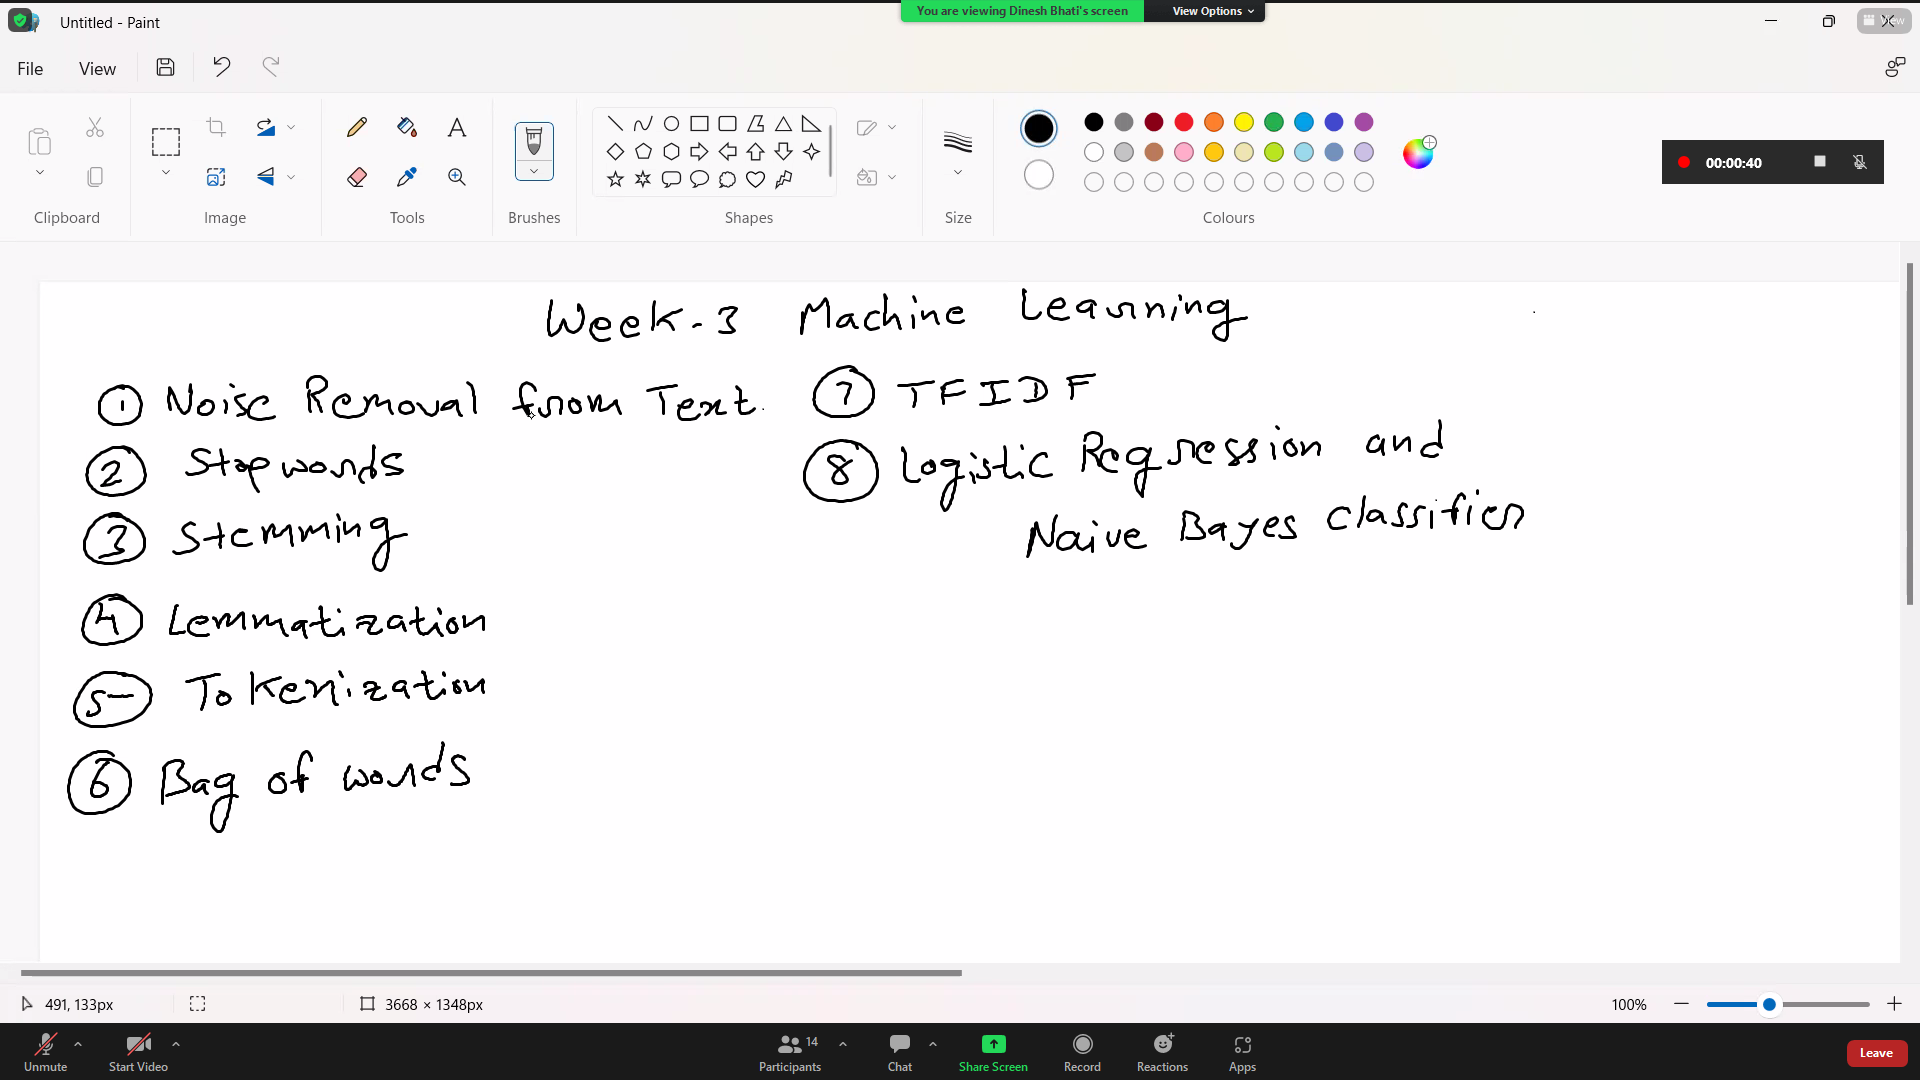 You are viewing Dinesh Bhati's screen
View Options
Untitled - Paint
View
File
View
00:00:40
Clipboard
Image
Tools
Brushes
Shapes
Size
Colours
Week-3 Machine Learning
1 Noise Removal from Text.
2 Stopwords
3 Stemming
4 Lemmatization
5 Tokenization
6 Bag of words
7 TFIDF
8 Logistic Regression and
Naive Bayes classifier
491, 133px
3668 × 1348px
100%
Unmute
Start Video
14
Participants
Chat
Share Screen
Record
Reactions
Apps
Leave